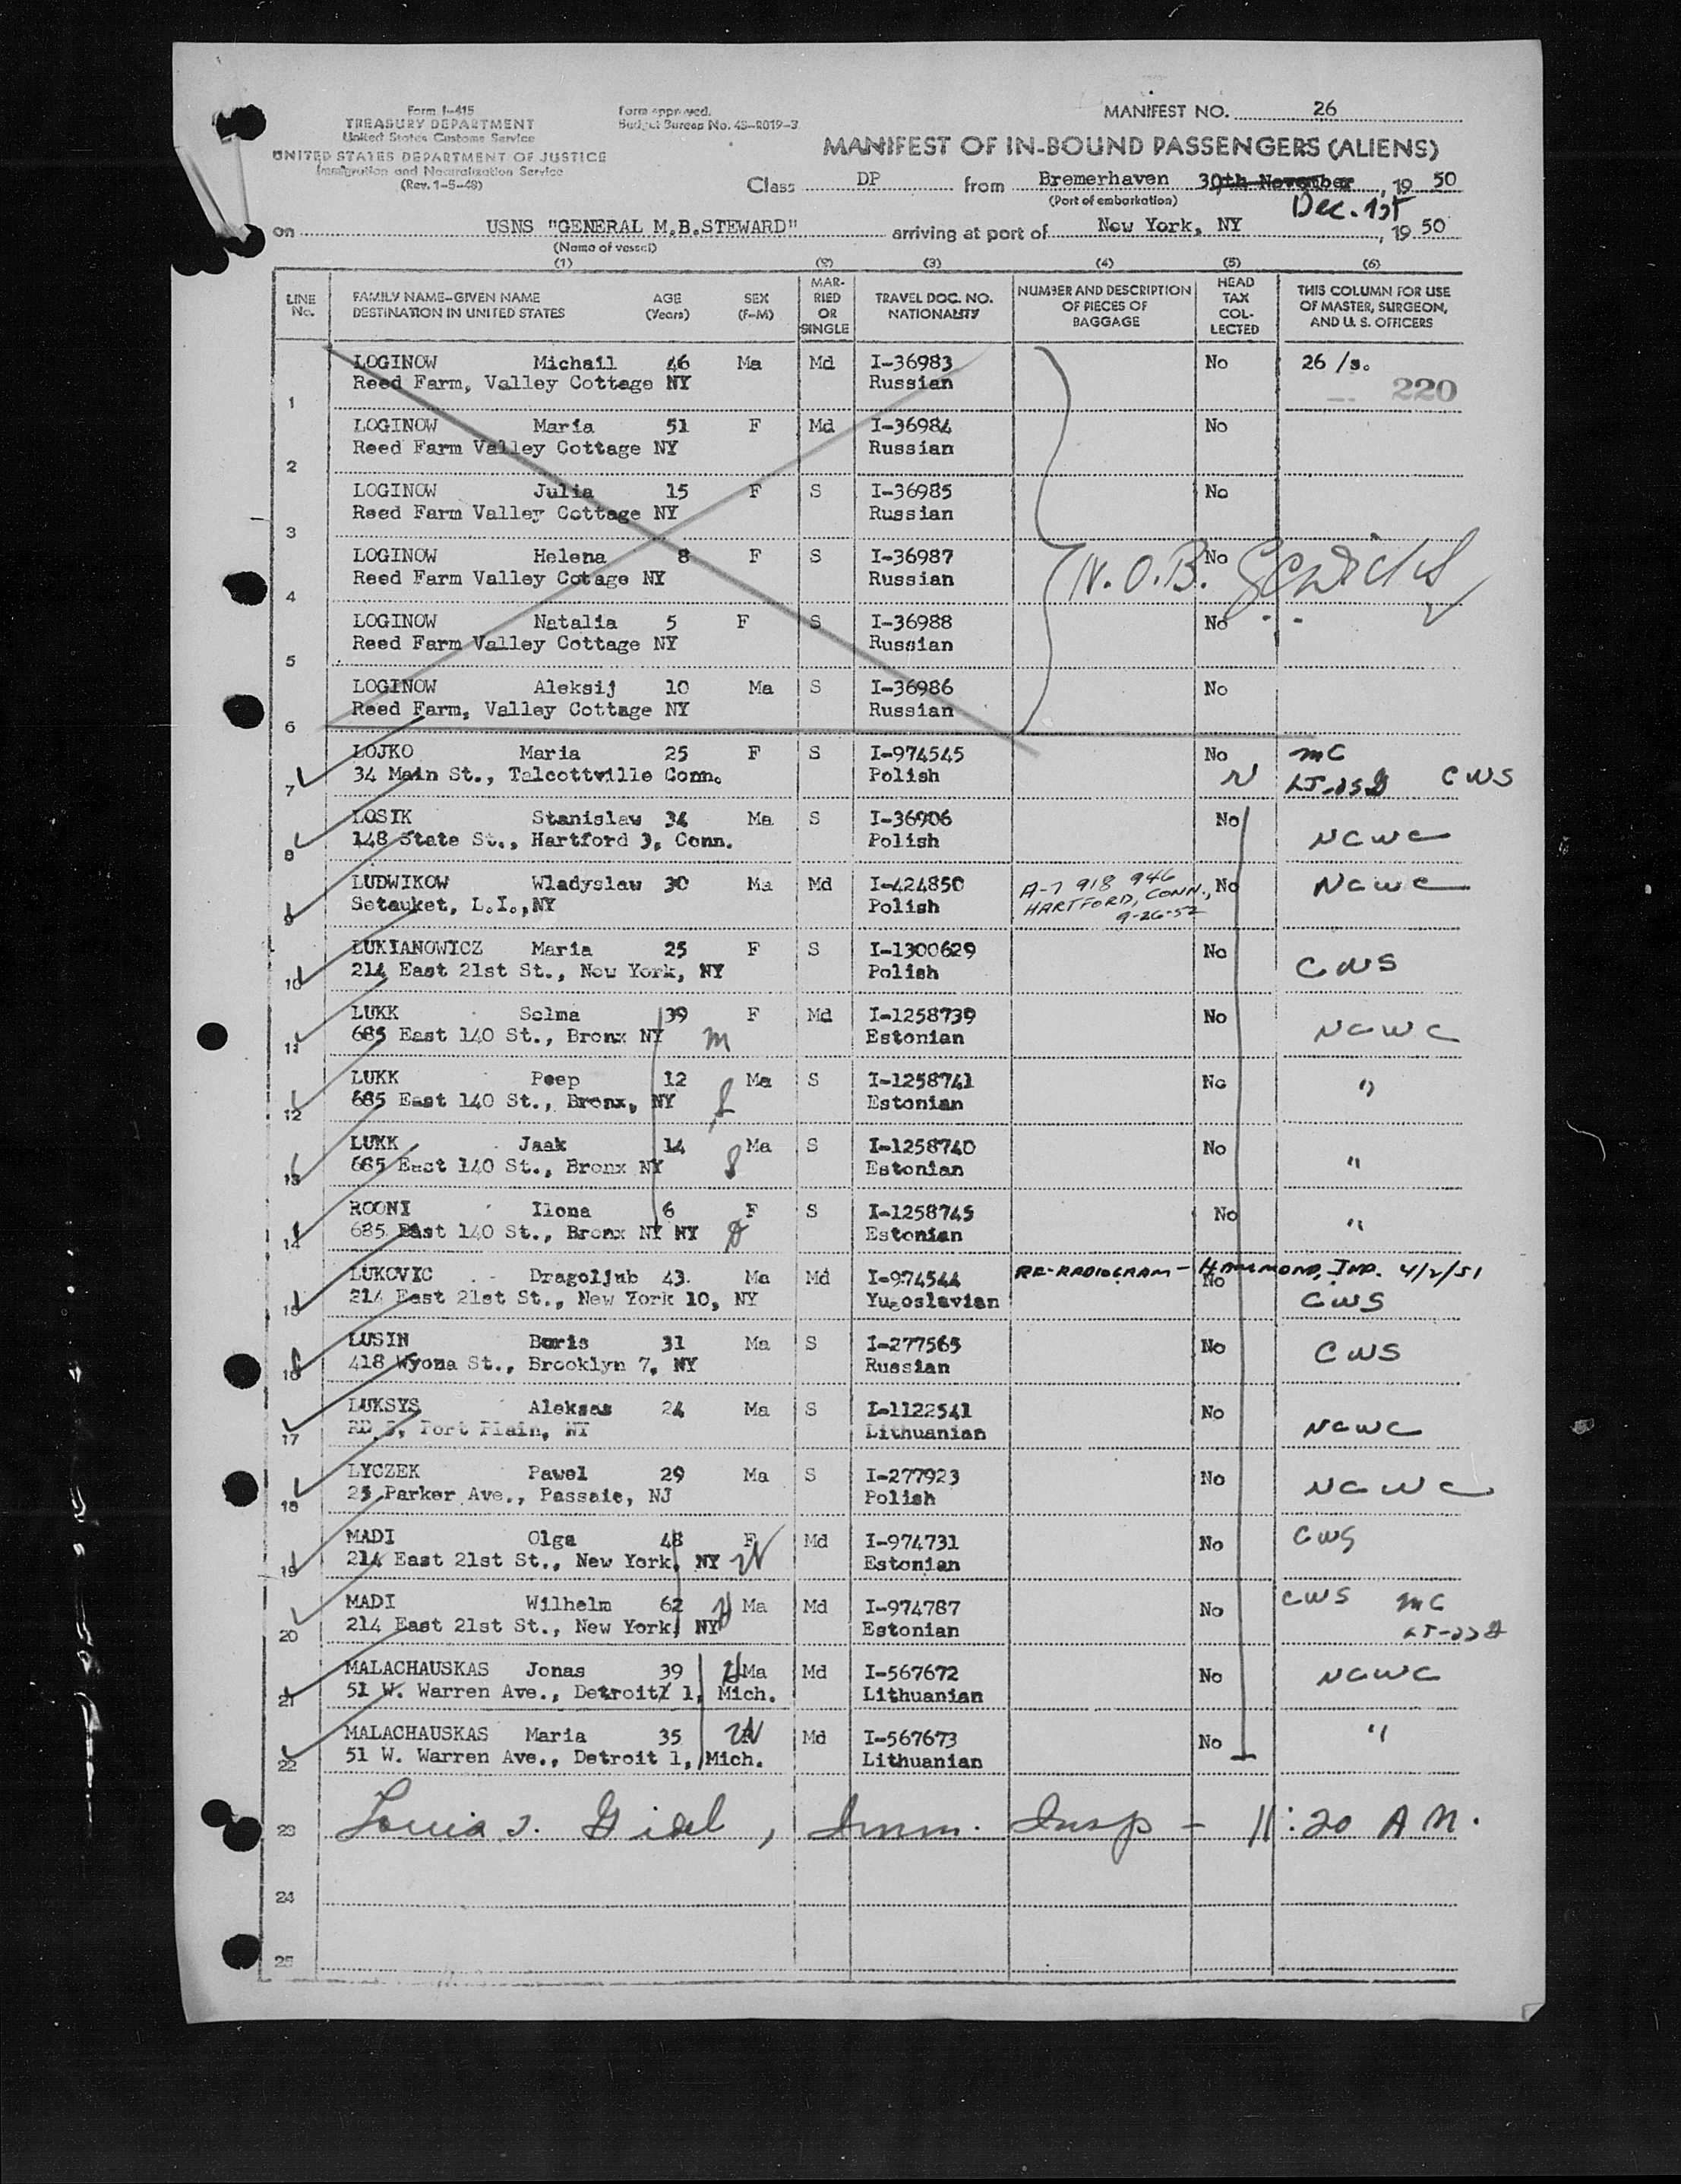 Form I-415
TREASURY DEPARTMENT
United States Customs Service
UNITED STATES DEPARTMENT OF JUSTICE
Immigration and Naturalization Service
(Rev. 1-5-48)
Form approved.
Budget Bureau No. 43-R019-3
MANIFEST NO. 26
MANIFEST OF IN-BOUND PASSENGERS (ALIENS)
Class DP from Bremerhaven 30th November, 19 50
(Port of embarkation)
Dec. 1st
on USNS "GENERAL M.B.STEWARD" arriving at port of New York, NY, 19 50
(Name of vessel)
(1) (2) (3) (4) (5) (6)
LINE No. FAMILY NAME-GIVEN NAME DESTINATION IN UNITED STATES AGE (Years) SEX (F-M) MARRIED OR SINGLE TRAVEL DOC. NO. NATIONALITY NUMBER AND DESCRIPTION OF PIECES OF BAGGAGE HEAD TAX COLLECTED THIS COLUMN FOR USE OF MASTER, SURGEON, AND U. S. OFFICERS
LOGINOW Michail 46 Ma Md I-36983 No 26 /s.
1 Reed Farm, Valley Cottage NY Russian 220
LOGINOW Maria 51 F Md I-36984 No
2 Reed Farm Valley Cottage NY Russian
LOGINOW Julia 15 F S I-36985 No
3 Reed Farm Valley Cottage NY Russian
LOGINOW Helena 8 F S I-36987 No
4 Reed Farm Valley Cotage NY Russian N.O.B.
LOGINOW Natalia 5 F S I-36988 No
5 Reed Farm Valley Cottage NY Russian
LOGINOW Aleksij 10 Ma S I-36986 No
6 Reed Farm, Valley Cottage NY Russian
LOJKO Maria 25 F S I-974545 No MC
7 34 Main St., Talcottville Conn. Polish CWS
LOSIK Stanislaw 34 Ma S I-36906 No
8 148 State St., Hartford 3, Conn. Polish NCWC
LUDWIKOW Wladyslaw 30 Ma Md I-424850 A-7 918 946 No NCWC
9 Setauket, L.I.,NY Polish HARTFORD, CONN., 9-26-52
LUKIANOWICZ Maria 25 F S I-1300629 No
10 214 East 21st St., New York, NY Polish CWS
LUKK Selma 39 F Md I-1258739 No
11 685 East 140 St., Bronx NY m Estonian NCWC
LUKK Peep 12 Ma S I-1258741 No "
12 685 East 140 St., Bronx, NY Estonian
LUKK Jaak 14 Ma S I-1258740 No
13 685 East 140 St., Bronx NY Estonian "
ROONI Ilona 6 F S I-1258745 No
14 685 East 140 St., Bronx NY NY Estonian "
LUKOVIC Dragoljub 43 Ma Md I-974544 RE-RADIOGRAM - HAMMOND, IND. 4/2/51 No
15 214 East 21st St., New York 10, NY Yugoslavian CWS
LUSIN Boris 31 Ma S I-277565 No CWS
16 418 Wyona St., Brooklyn 7, NY Russian
LUKSYS Aleksas 24 Ma S I-1122541 No
17 RD Fort Plain, NY Lithuanian NCWC
LYCZEK Pawel 29 Ma S I-277923 No
18 25 Parker Ave., Passaic, NJ Polish NCWC
MADI Olga 48 F Md I-974731 No CWS
19 214 East 21st St., New York, NY W Estonian
MADI Wilhelm 62 H Ma Md I-974787 No CWS MC
20 214 East 21st St., New York, NY Estonian
MALACHAUSKAS Jonas 39 H Ma Md I-567672 No NCWC
21 51 W. Warren Ave., Detroit 1, Mich. Lithuanian
MALACHAUSKAS Maria 35 W Md I-567673 No "
22 51 W. Warren Ave., Detroit 1, Mich. Lithuanian
23 Louis J. Imm. Insp - 11:20 A.M.
24
25